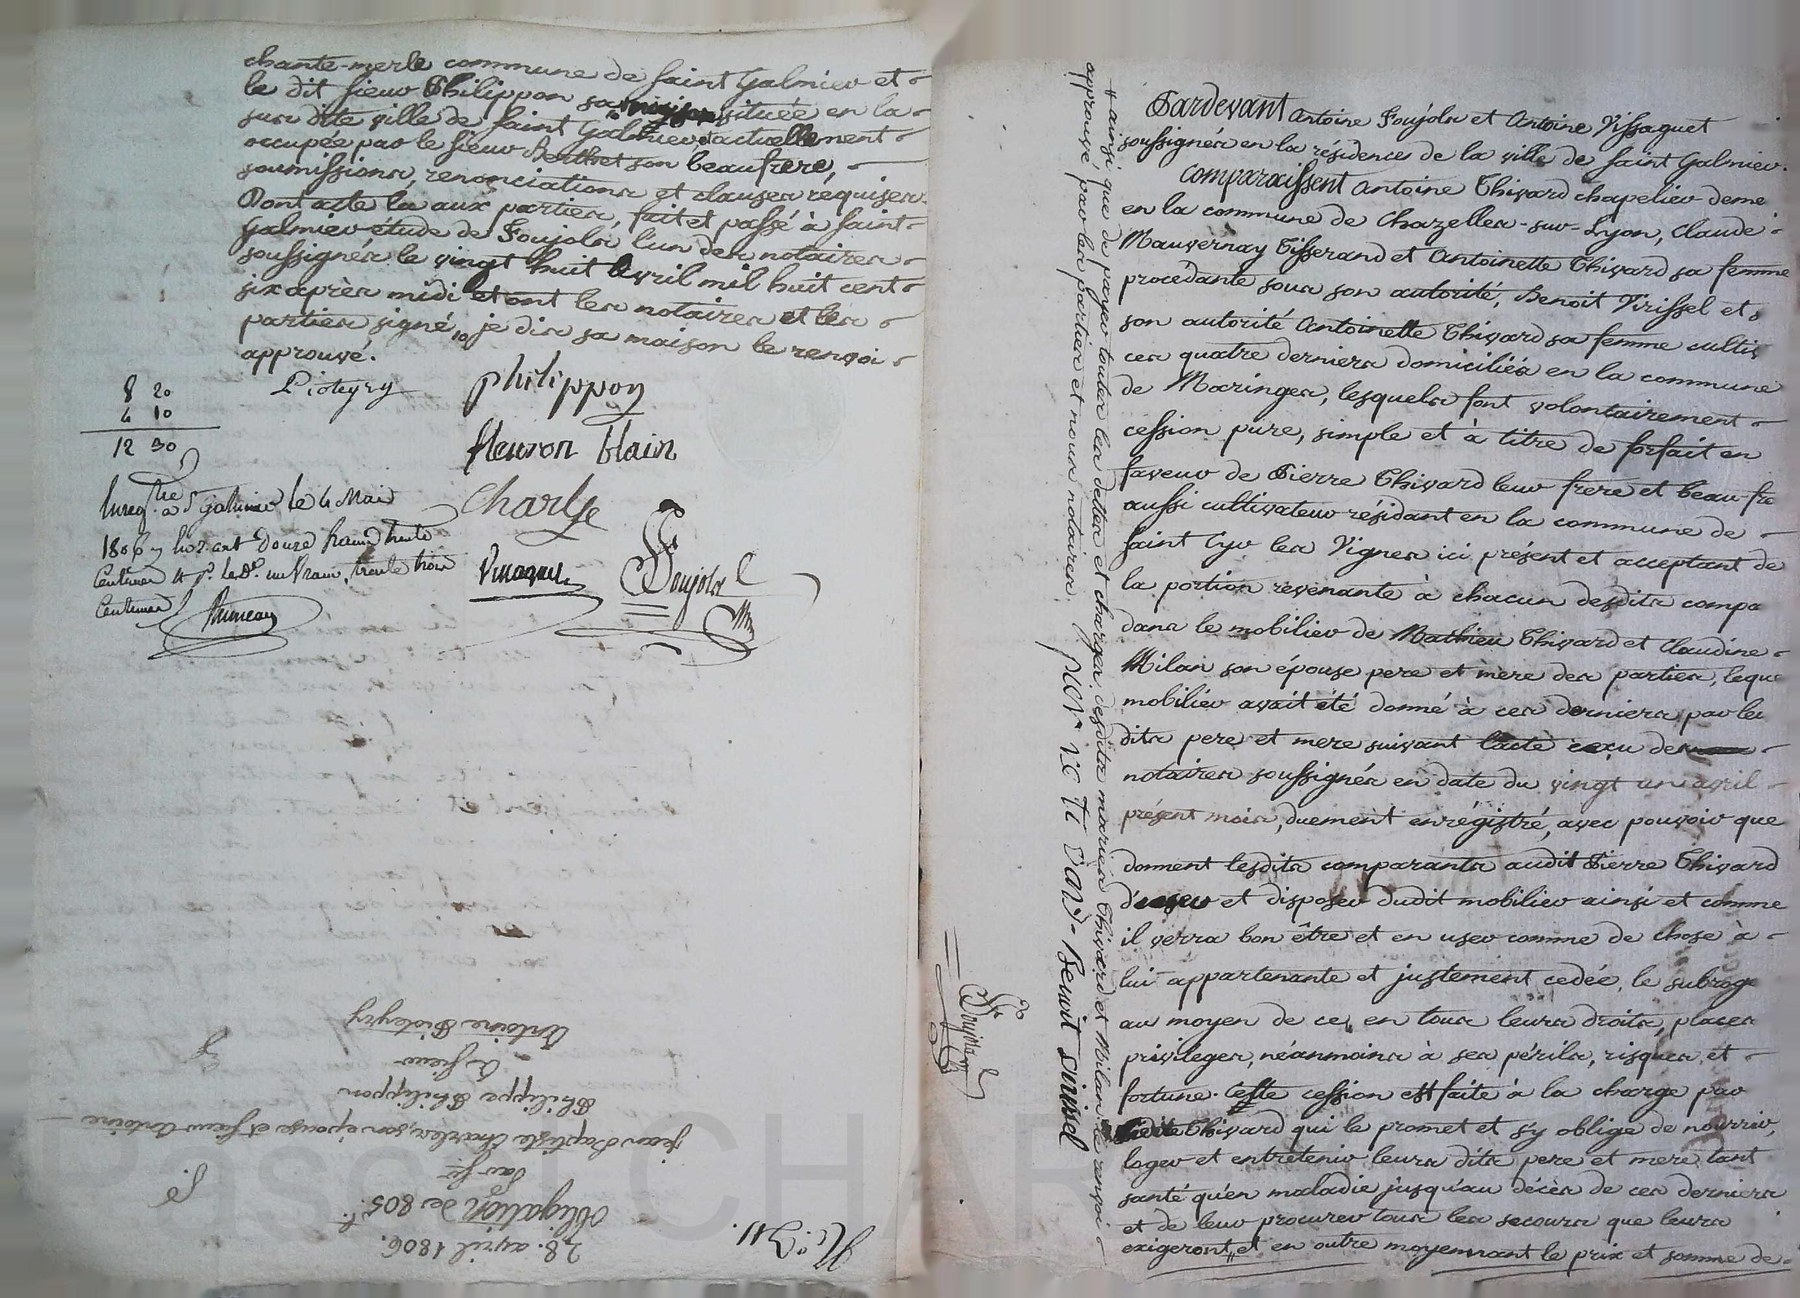 chante-merle commune de Saint Galmier et
le dit sieur Philippon sa située en la
sus dite ville de Saint Galmier, actuellement
occupée par le sieur Berthet son beaufrere,
soumissions, renonciations et clauses réquises.
Dont acte lu aux parties, fait et passé à Saint
Galmier étude de Soujols l'un des notaires
soussignés le vingt huit avril mil huit cent
six après midi et ont les notaires et les
partiés signé, je dis sa maison le renvoi
approuvé.
8 20
4 10
12 30
Pioteyry
philippon
fleuron blain
Charle
Soujols
Enregtré à St Galmier le 4 Mai
1806 douze francs trente
Centimes trente trois
Centimes
No. 311.
28. avril 1806.
Obligation de 805 f.
Par Sr
jean Baptiste Charles, son épouse et sieur Antoine
Philippe Philippon
A sieur
Antoine Pioteyry
Soujols
+ ainsi que de payer toutes les dettes et charges desdits mariés Thivard et Milan le renvoi
approuvé par les parties et nous notaires.
Benoit Virissel
Pardevant Antoine Soujols et Antoine Vissaguet
soussignés en la résidences de la ville de Saint Galmier.
Comparaissent Antoine Thivard chapelier deme
en la commune de Chazelles-sur-Lyon, Claude
Mauvernay Tisserand et Antoinette Thivard sa femme
procédante sous son autorité, Benoit Virissel et
son autorité Antoinette Thivard sa femme cultiv
ces quatre derniers domiciliés en la commune
de Maringes, lesquels font volontairement
cession pure, simple et à titre de forfait en
faveur de Pierre Thivard leur frere et beau-fre
aussi cultivateur résidant en la commune de
Saint Cyr les Vignes ici présent et acceptant de
la portion revenante à chacun desdits compa
dans le mobilier de Mathieu Thivard et Claudine
Milan son épouse pere et mere des parties, leque
mobilier avait été donné à ces derniers par les
dits pere et mere suivant l'acte reçu des
notaires soussignés en date du vingt un avril
présent mois, duement enrégistré, avec pouvoir que
donnent lesdits comparants audit Pierre Thivard
d'user et disposer dudit mobilier ainsi et comme
il verra bon être et en user comme de chose à
lui appartenante et justement cedée, le subroge
au moyen de ce, en tous leurs droits, places
privileges, néanmoins à ses périls, risques, et
fortune. Cette cession est faite à la charge par
ledit Thivard qui le promet et s'y oblige de nourrir,
loger et entretenir leurs dits pere et mere tant
santé qu'en maladie jusqu'au décès de ces derniers
et de leur procurer tous les secours que leurs
exigeront, et en outre moyennant le prix et somme de
Pascal CHAR